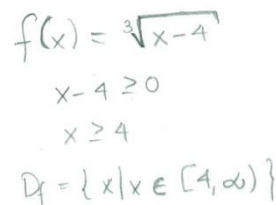 f(x) = ∛(x-4)
x-4 ≥ 0
x ≥ 4
Df = { x | x ∈ [4, ∞) }